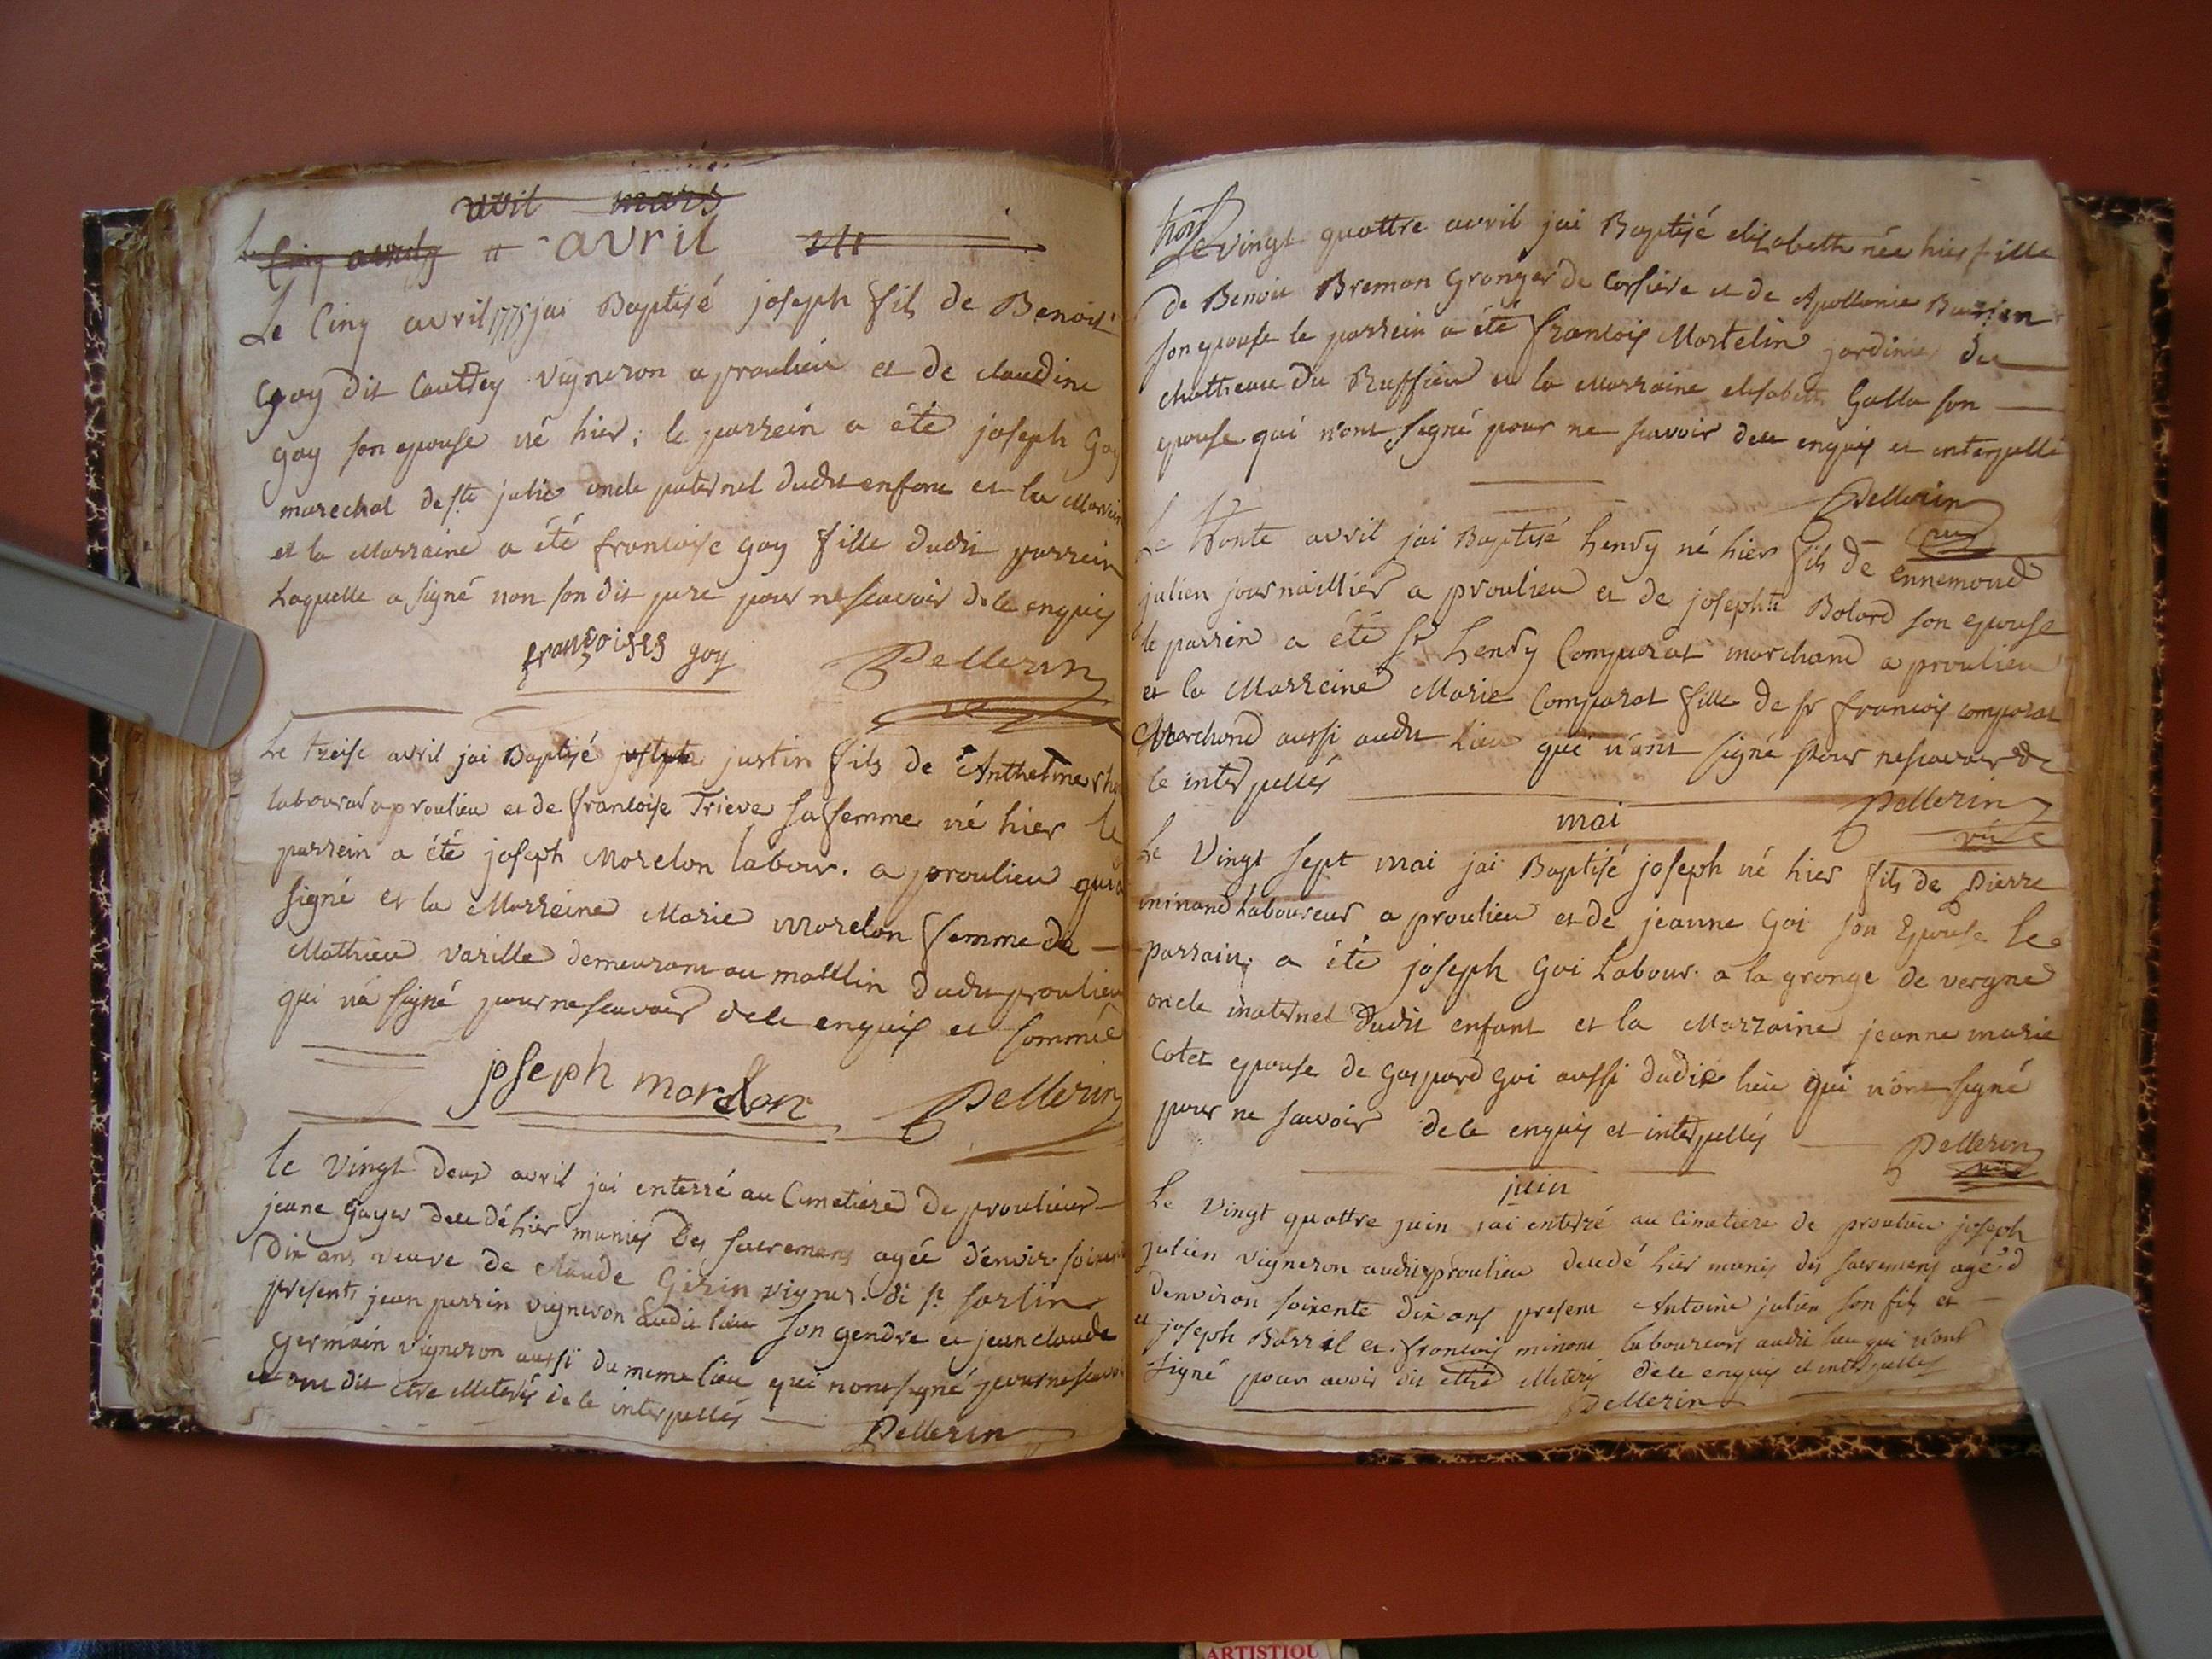 avril mars
Le Cinq avril avril
Le Cinq avril 1775 jai Baptisé joseph fils de Benoit
goy dit Cauttey vigneron a proulieu et de claudine
goy son epouse né hier; le parrein a été joseph Goy
marechal de ste julie oncle paternel dudit enfant et la Marrein
et la Marraine a été francoise goy fille dudit parrein
Laquelle a signé non son dit pere pour ne scavoir de le enquis
françoises goy Pellerin
Le treise avril jai Baptisé joseph justin fils de Anthelme
labourur a proulieu et de francoise Trieve sa femme né hier le
parrein a été joseph Morelon labour. a proulieu qui a
signé et la Marreine Marie morelon femme de
Mathieu Varille demeurant au moullin dudit proulieu
qui n'a signé pour ne scavoir de le enquis et sommée
joseph morelon Pellerin
le Vingt deux avril jai enterré au Cimetiere de proulieu
jeane Goyer decedé hier munis des sacremens agée d'enviro soixent
Dix ans veuve de claude Girin vigner. di st sorlin
presents jean perrin vigneron dudit lieu son gendre et jean claude
Germain vigneron aussi du meme lieu qui n'ont signé pour ne scavoi
et ont dit etre illeterés de le interpellés Pellerin
trois
Le Vingt quattre avril jai Baptisé elisabeth née hier fille
de Benoit Bremon Granger de Corsieve et de Apollonie
son epouse le parrein a été francois Martelin jardinier du
chattreau du Ruffieu et la Marraine elisabeth Galla son
epouse qui n'ont signé pour ne scavoir dele enquis et interpellé
Pellerin
Le trente avril jai Baptisé henry né hier fils de ennemond
julien journaillier a proulieu et de josephte Bolard son epouse
le parrein a été sr henry Comparat marchand a proulieu
et la Marreine Marie Comparat fille de sr francois comparat
Marchand aussi audit Lieu qui n'ont signé pour ne scavoir de
le interpellés Pellerin
mai vû
Le Vingt sept mai jai Baptisé joseph né hier fils de Pierre
minand Laboureur a proulieu et de jeanne Goi son Epouse le
parrain a été joseph Goi Labour. a la grange de vergne
oncle maternel dudit enfant et la Marraine jeanne marie
Cotet epouse de Gaspard goi aussi dudit lieu qui n'ont signé
pour ne scavoir de le enquis et interpellés Pellerin
juin
Le Vingt quattre juin jai enterré au cimetiere de proulieu joseph
julien vigneron audit proulieu decedé hier munis des sacremens agé d
denviron soixente dix ans presens Antoine julien son fils et
et joseph Barril et francois minant laboureurs audit lieu qui n'ont
signé pour avoir dit ettre illeterés de le enquis et interpelles
Pellerin
ARTISTIQU